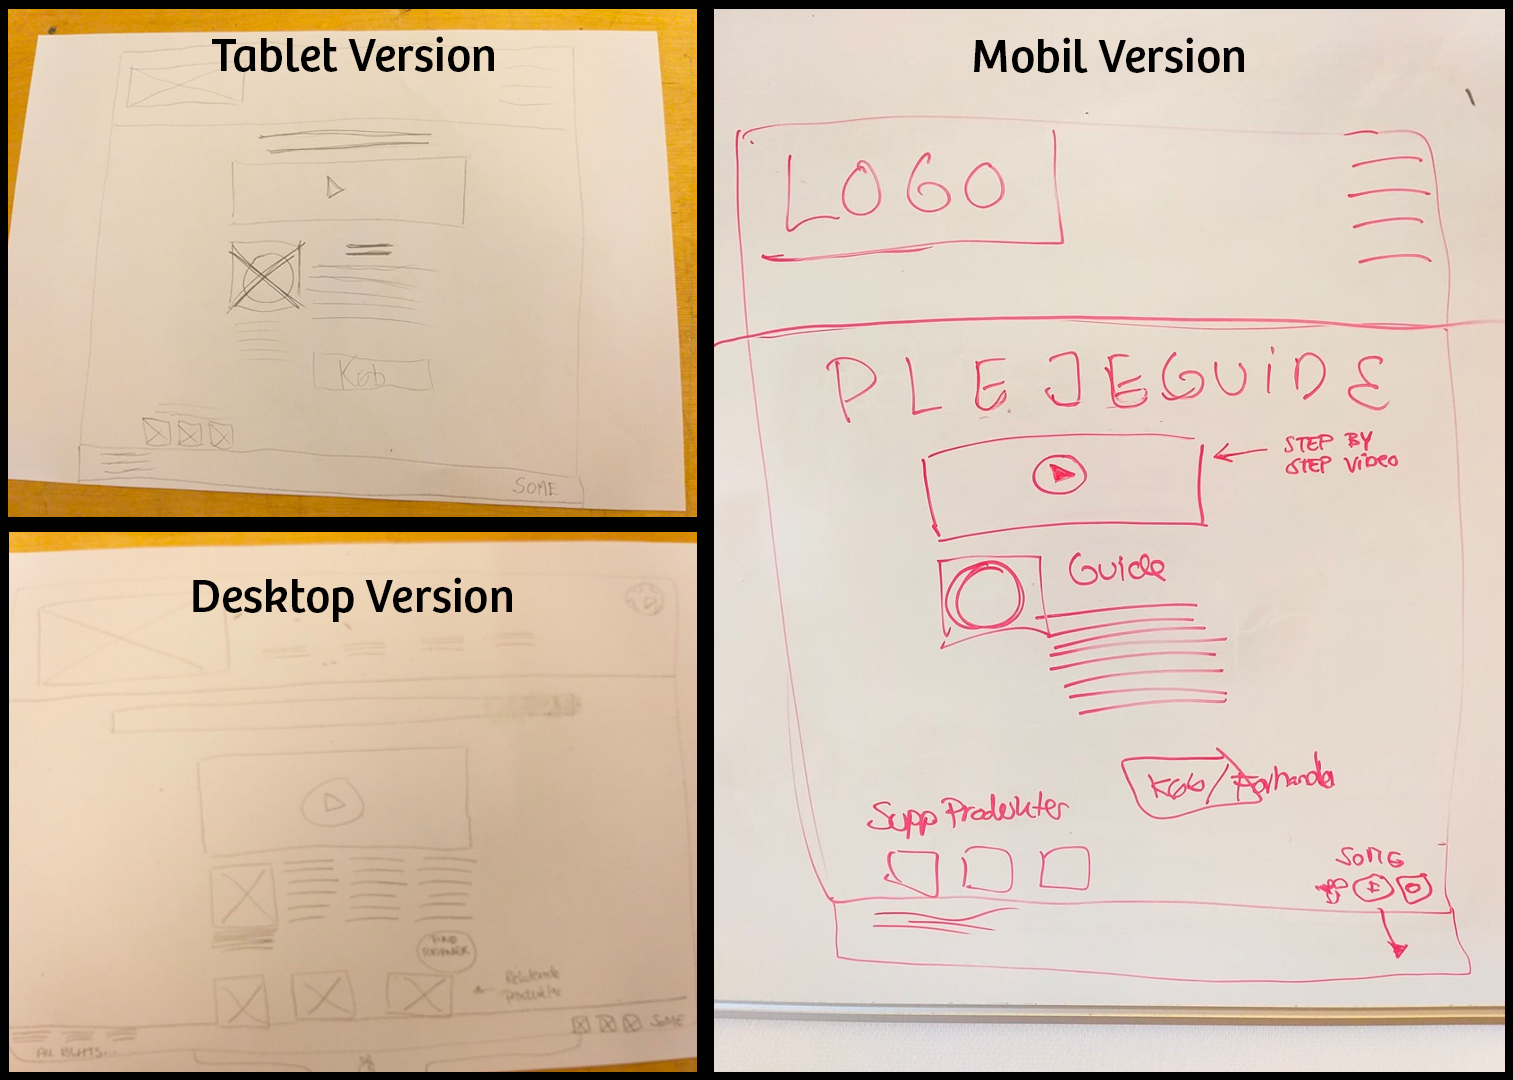 Tablet Version
Køb
SOME
Desktop Version
FIND
FORHANDLER
Relaterede
Produkter
SOME
Mobil Version
LOGO
PLEJEGUIDE
STEP BY
STEP Video
Guide
Køb/Forhandler
Supp Produkter
SOME